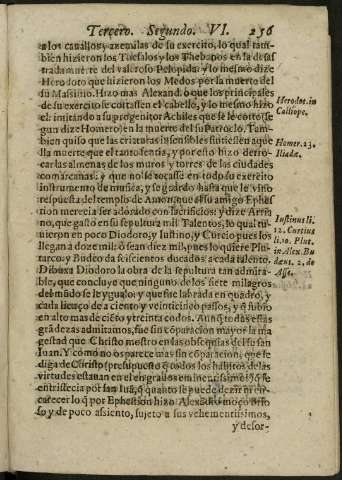 Tercero. Segundo. VI. 256
a los cauallos y azemilas de su exercito, lo qual tam-
bien hizieron los Tuesalos y los Thebanos en la desas
trada muerte del valeroso Pelopida: y lo mesmo dize
Herodoto que hizieron los Medos por la muerte del
su Massimo. Hizo mas Alexand. ó que los principales
de su exercito se cortassen el cabello, y lo mesmo hizo
el: imitando a su progenitor Achiles que se le corto (se
gun dize Homero) en la muerte de su Patroclo. Tam-
bien quiso que las criaturas insensibles sintiessen aque
lla muerte que el tanto sentia, y por esto hizo derro-
car las almenas de los muros y torres de las ciudades
comarcanas: y que no se tocasse en todo su exercito
instrumento de musica, y se guardo hasta que le vino
respuesta del templo de Amon, que a su amigo Ephes-
tion merecia ser adorado con sacrificios: y dize Arria
no, que gastó en su sepultura mil Talentos, lo qual tu-
uieron en poco Diodoro, y Iustino, y Curcio pues los
llegan a doze mil: ó sean diez mil, pues lo quiere Plu-
tarco: y Budeo da seiscientos ducados a cada talento.
Dibuxa Diodoro la obra de la sepultura tan admira-
ble, que concluye que ninguno de los siete milagros
del mũdo se le ygualo: y que fue labrada en quadro, y
cada lienço de a ciento y veinticinco passos, y q̃ subio
en alto mas de ciẽto y treinta codos. Aunq̃ todas estas
grãdezas admitamos, fue sin cõparacion mayor la ma
gestad que Christo mostro en las obsequias del su san
Iuan. Y como no os parece mas sin comparacion, que se
diga de Christo (presupuesto q̃ todos los habitos de las
virtudes estauan en el en grados eminentissimos) q̃ se
entristecia por san Iuã, q̃ quanto se puede dezir ni en-
carecer lo q̃ por Ephestion hizo Alexãdro moço brio
so y de poco assiento, sujeto a sus vehementissimos,
y desor-
Herodot. in
Calliope.
Homer. 23.
Iliados.
Iustinus li.
12. Curtius
li. 10. Plut.
in Alex. Bu
dæus. 2. de
Asse.